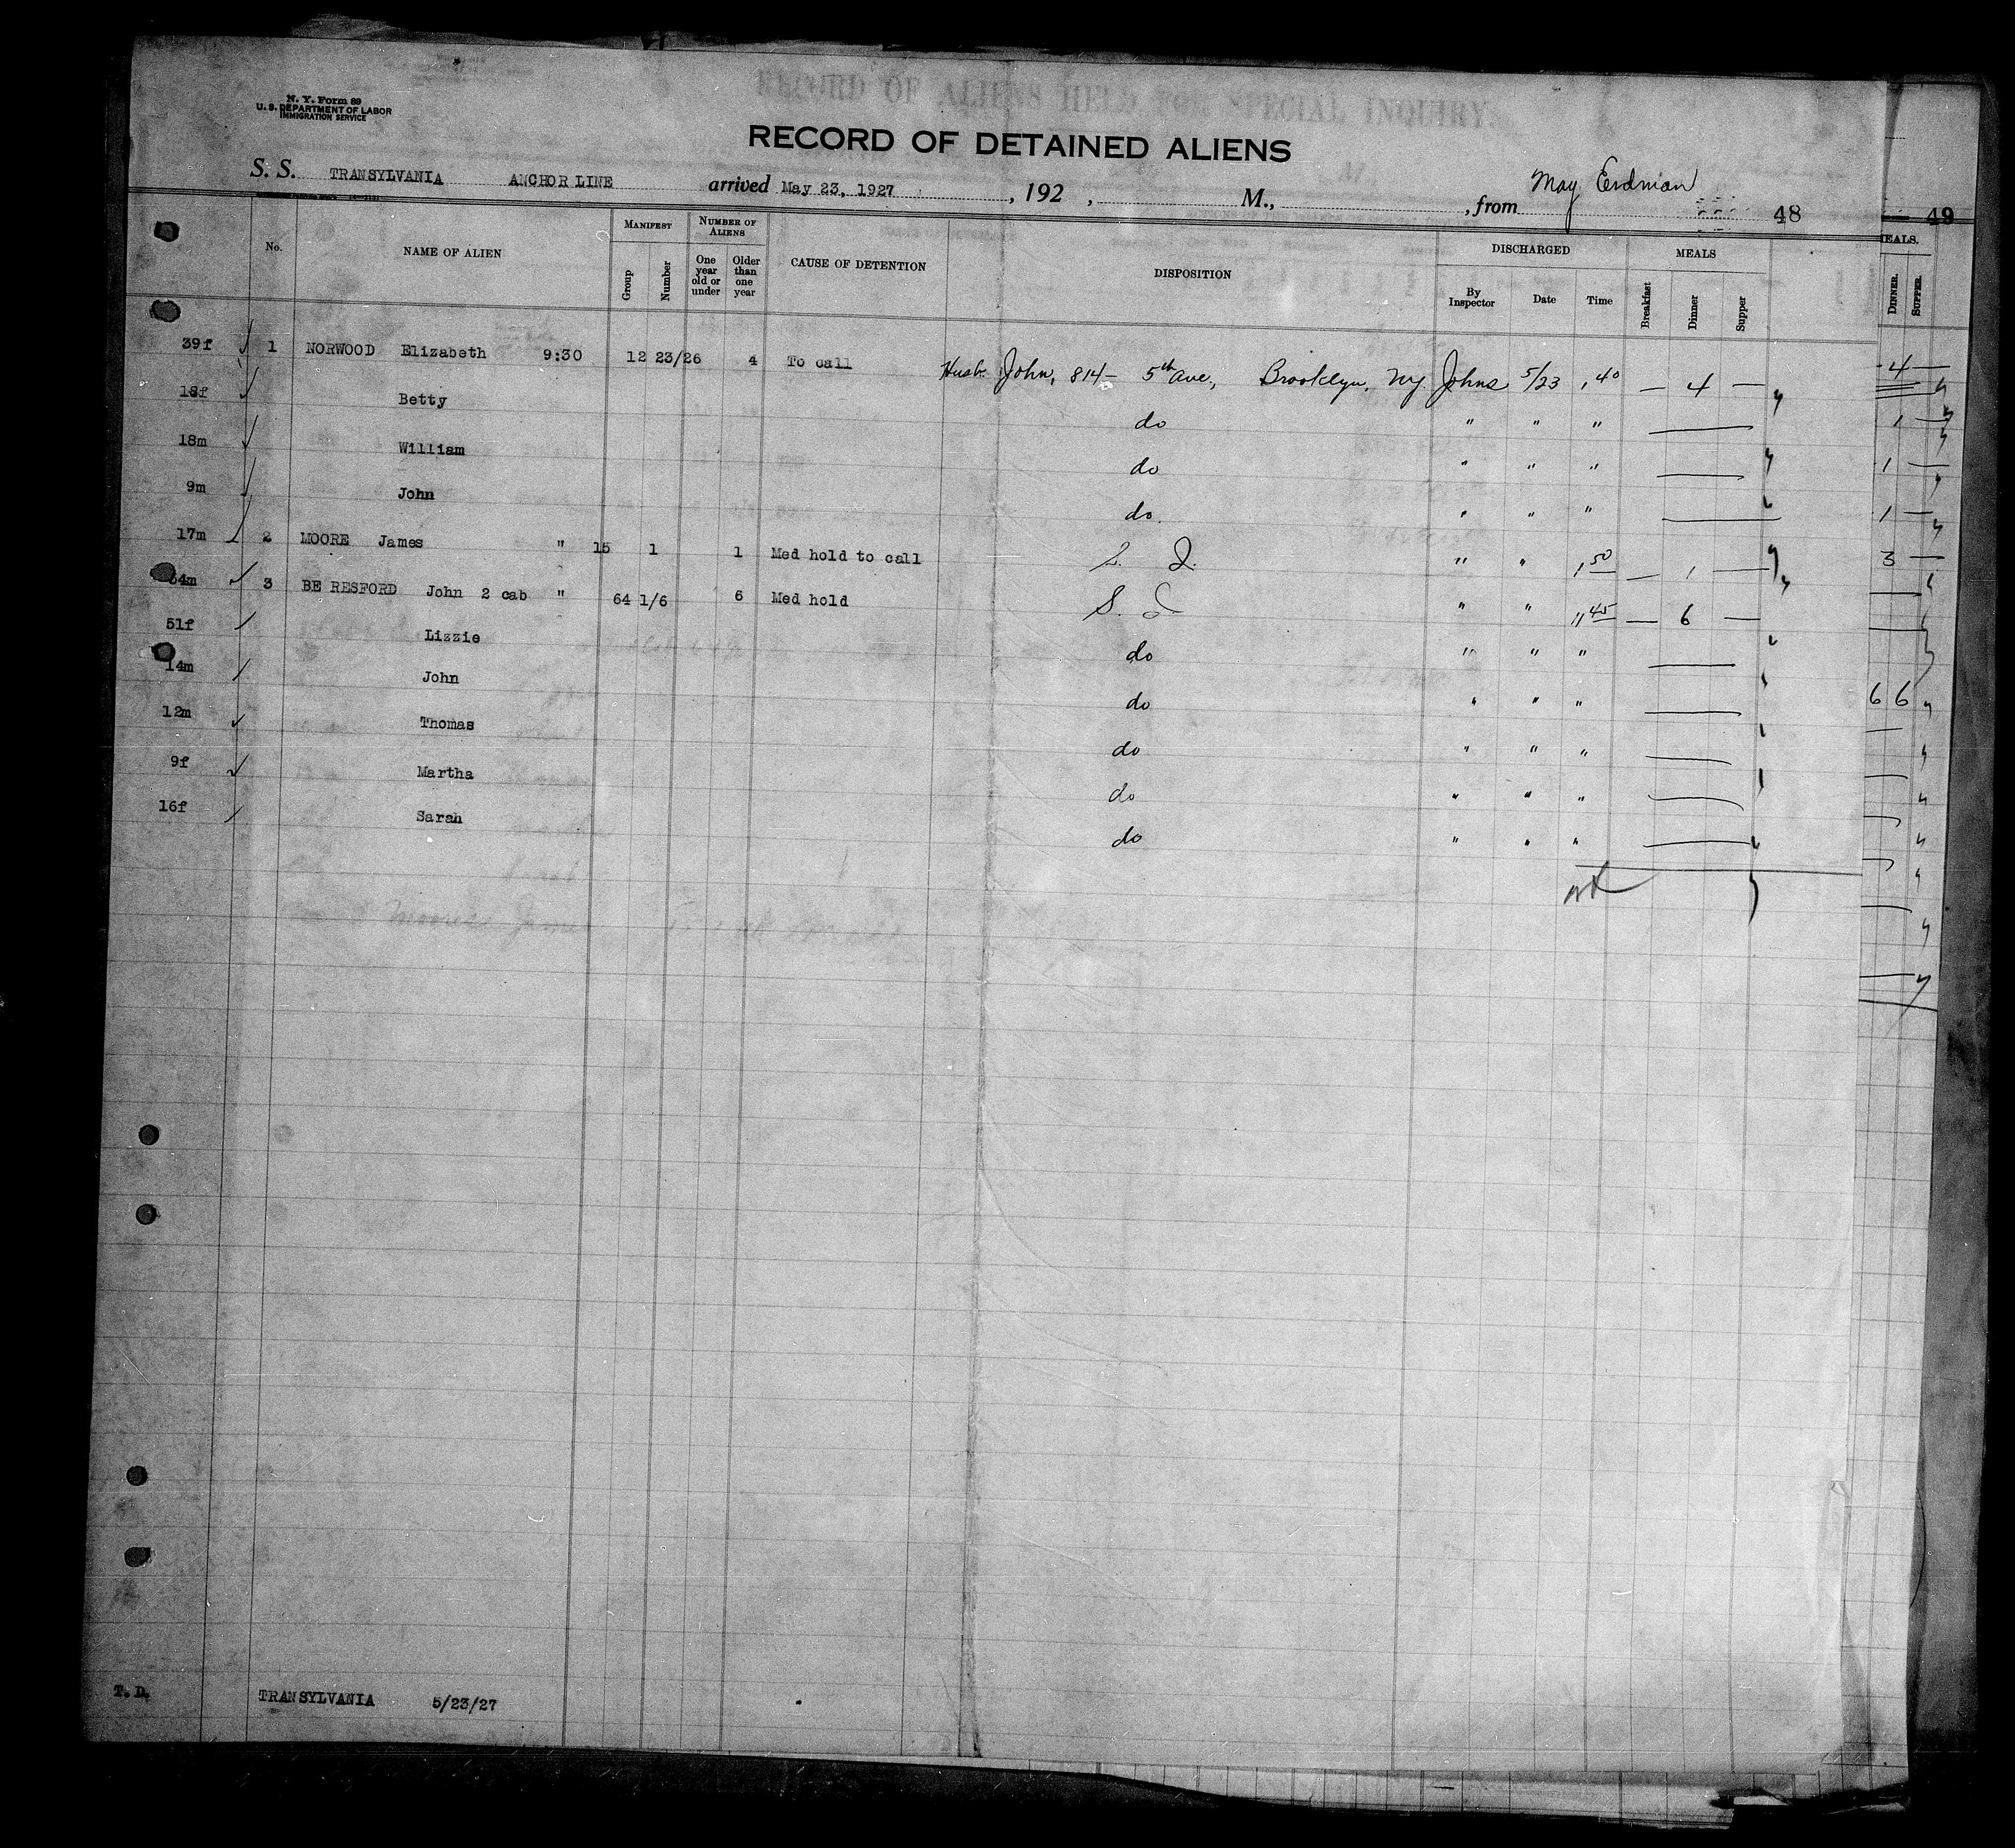 RECORD OF ALIENS HELD FOR SPECIAL INQUIRY
N. Y. Form 89
U. S. DEPARTMENT OF LABOR
IMMIGRATION SERVICE
RECORD OF DETAINED ALIENS
S. S. TRANSYLVANIA ANCHOR LINE arrived May 23, 1927 , 192 , M., , from May Erdman 48 49
No. NAME OF ALIEN MANIFEST Group Number NUMBER OF ALIENS One year old or under Older than one year CAUSE OF DETENTION DISPOSITION DISCHARGED By Inspector Date Time MEALS Breakfast Dinner Supper
MEALS. DINNER. SUPPER.
39f 1 NORWOOD Elizabeth 9:30 12 23/26 4 To call Husb. John, 814 - 5th Ave., Brooklyn, N.Y. Johns 5/23 1 40 — 4 — 4 —
18f Betty do " " " 1 —
18m William do " " " 1 —
9m John do. " " " 1 —
17m 2 MOORE James " 15 1 1 Med hold to call S. I. " " 1 50 — 1 — 3 —
54m 3 BERESFORD John 2 cab " 64 1/6 6 Med hold S. I. " " 11 45 — 6 —
51f Lizzie do " " "
14m John do " " " 6 6
12m Thomas do " " "
9f Martha do " " "
16f Sarah do " " "
T. D. TRANSYLVANIA 5/23/27